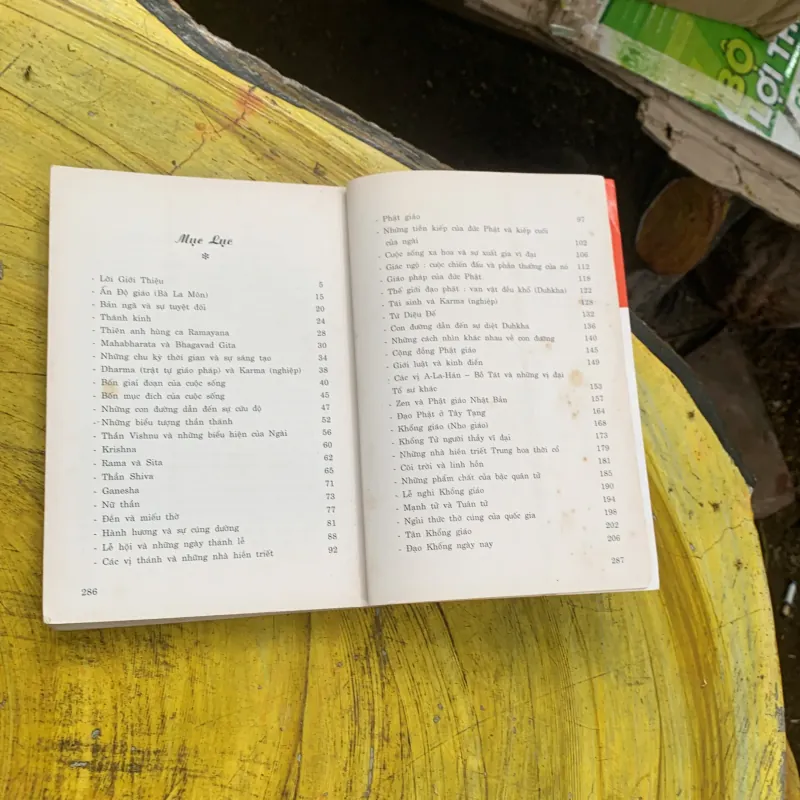 Mục Lục
- Lời Giới Thiệu 5
- Ấn Độ giáo (Bà La Môn) 15
- Bản ngã và sự tuyệt đối 20
- Thánh kinh 24
- Thiên anh hùng ca Ramayana 28
- Mahabharata và Bhagavad Gita 30
- Những chu kỳ thời gian và sự sáng tạo 34
- Dharma (trật tự giáo pháp) và Karma (nghiệp) 38
- Bốn giai đoạn của cuộc sống 40
- Bốn mục đích của cuộc sống 45
- Những con đường dẫn đến sự cứu độ 47
- Những biểu tượng thần thánh 52
- Thần Vishnu và những biểu hiện của Ngài 56
- Krishna 60
- Rama và Sita 62
- Thần Shiva 65
- Ganesha 71
- Nữ thần 73
- Đền và miếu thờ 77
- Hành hương và sự cúng dường 81
- Lễ hội và những ngày thánh lễ 88
- Các vị thánh và những nhà hiền triết 92
286
- Phật giáo 97
- Những tiền kiếp của đức Phật và kiếp cuối
của ngài 102
- Cuộc sống xa hoa và sự xuất gia vĩ đại 106
- Giác ngộ : cuộc chiến đấu và phần thưởng của nó 112
- Giáo pháp của đức Phật 118
- Thế giới đạo phật : vạn vật đều khổ (Duhkha) 122
- Tái sinh và Karma (nghiệp) 128
- Tứ Diệu Đế 132
- Con đường dẫn đến sự diệt Duhkha 136
- Những cách nhìn khác nhau về con đường 140
- Cộng đồng Phật giáo 145
- Giới luật và kinh điển 149
: Các vị A-La-Hán – Bồ Tát và những vị đại
Tổ sư khác 153
- Zen và Phật giáo Nhật Bản 157
- Đạo Phật ở Tây Tạng 164
- Khổng giáo (Nho giáo) 168
- Khổng Tử người thầy vĩ đại 173
- Những nhà hiền triết Trung hoa thời cổ 179
- Cõi trời và linh hồn 181
- Những phẩm chất của bậc quân tử 185
- Lễ nghi Khổng giáo 190
- Mạnh tử và Tuân tử 194
- Nghi thức thờ cúng của quốc gia 198
- Tân Khổng giáo 202
- Đạo Khổng ngày nay 206
287
BỘ
LỢI